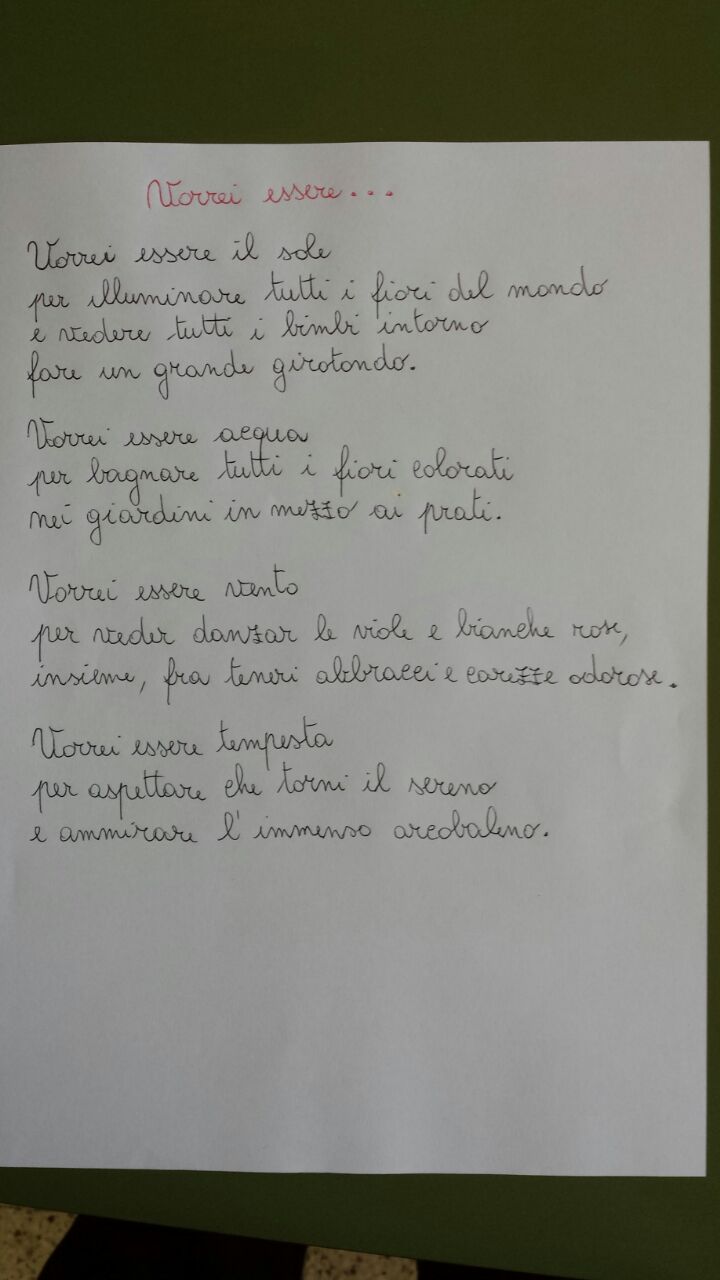 Vorrei essere...
Vorrei essere il sole
per illuminare tutti i fiori del mondo
e vedere tutti i bimbi intorno
fare un grande girotondo.
Vorrei essere acqua
per bagnare tutti i fiori colorati
nei giardini in mezzo ai prati.
Vorrei essere vento
per veder danzar le viole e bianche rose,
insieme, fra teneri abbracci e carezze odorose.
Vorrei essere tempesta
per aspettare che torni il sereno
e ammirare l'immenso arcobaleno.